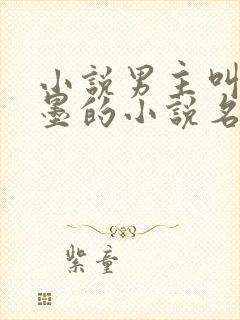 小説男主叫
墨的小説名
紫童